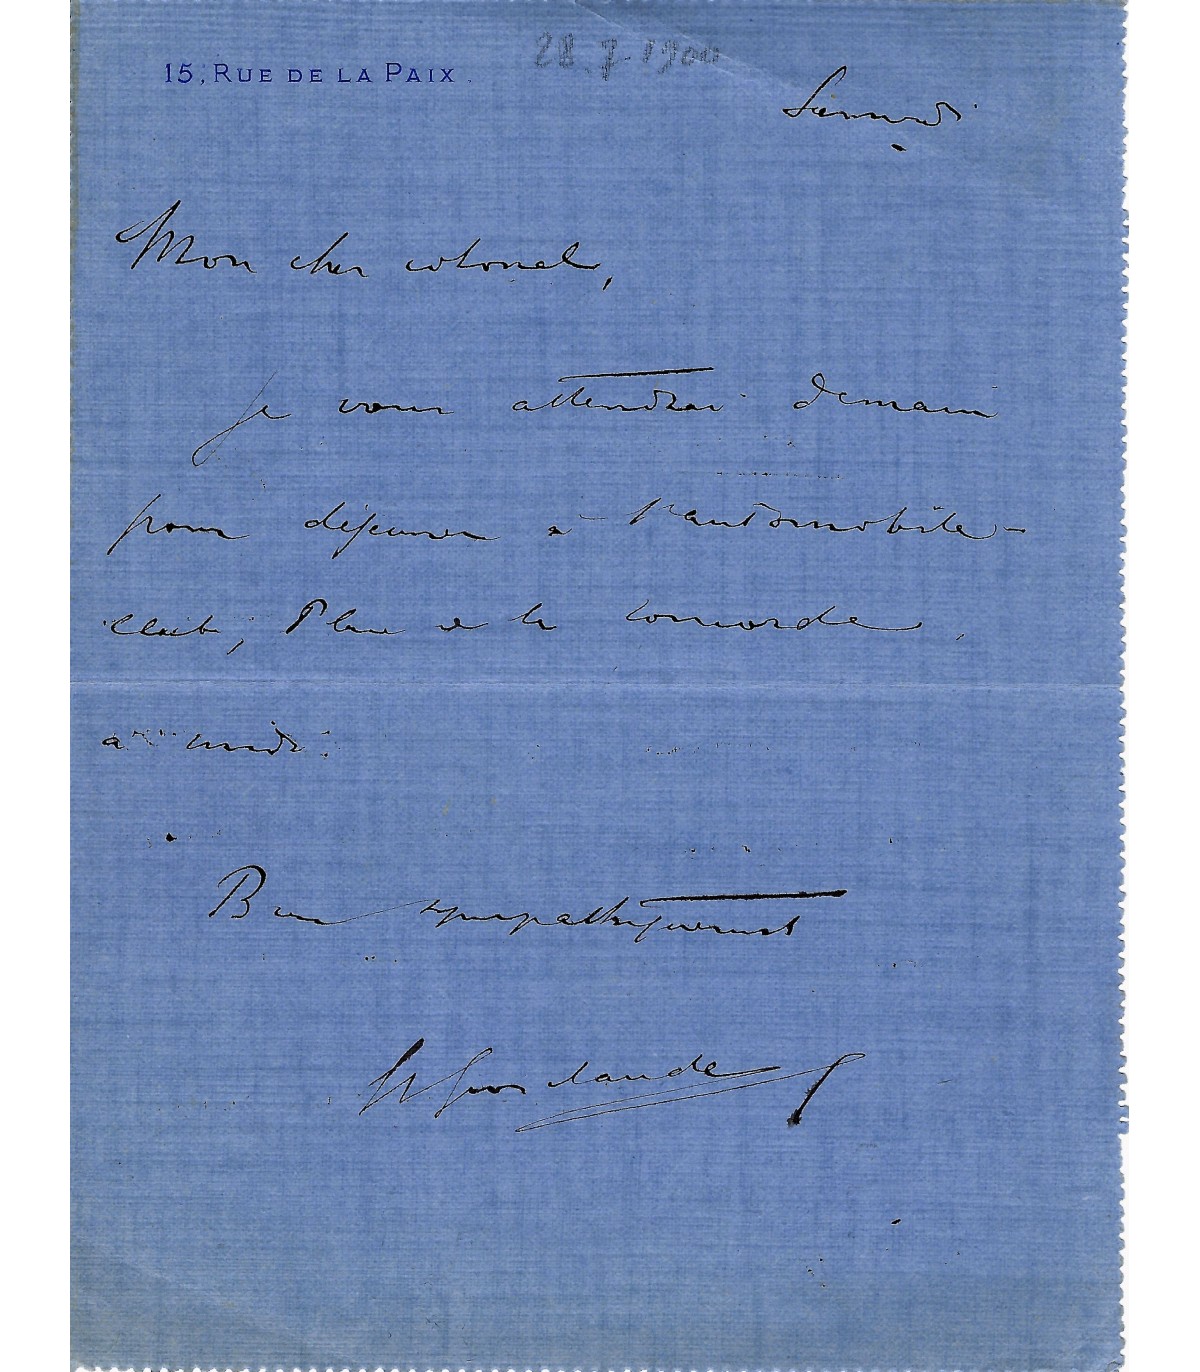 28.7.1900
15, RUE DE LA PAIX.
Samedi
Mon cher colonel,
Je vous attendrai demain
pour déjeuner à l'automobile-
club, Place de la Concorde,
à midi.
Bien sympathiquement